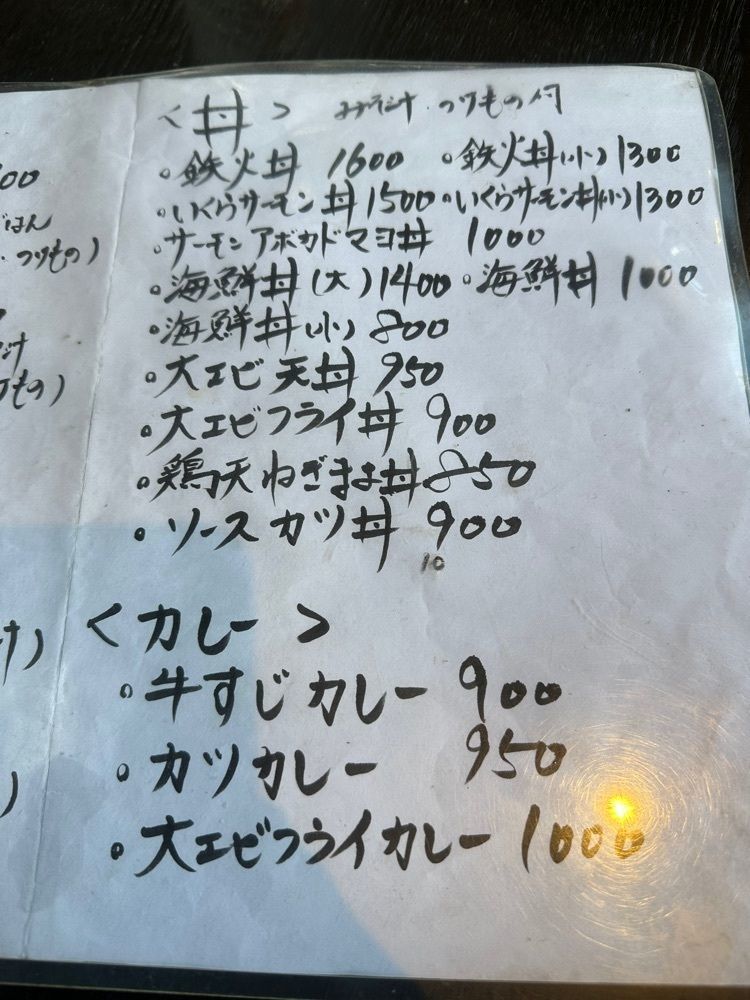 00
ごはん
・つけもの)
<丼> みそ汁・つけもの付
・鉄火丼 1600 ・鉄火丼(小) 1300
・いくらサーモン丼 1500 ・いくらサーモン丼(小) 1300
サーモンアボカドマヨ丼 1000
・海鮮丼(大) 1400 ・海鮮丼 1000
・海鮮丼(小) 800
・大エビ天丼 950
・大エビフライ丼 900
・鶏天ねぎまよ丼 850
・ソースカツ丼 900
10
<カレー>
・牛すじカレー 900
・カツカレー 950
・大エビフライカレー 1000